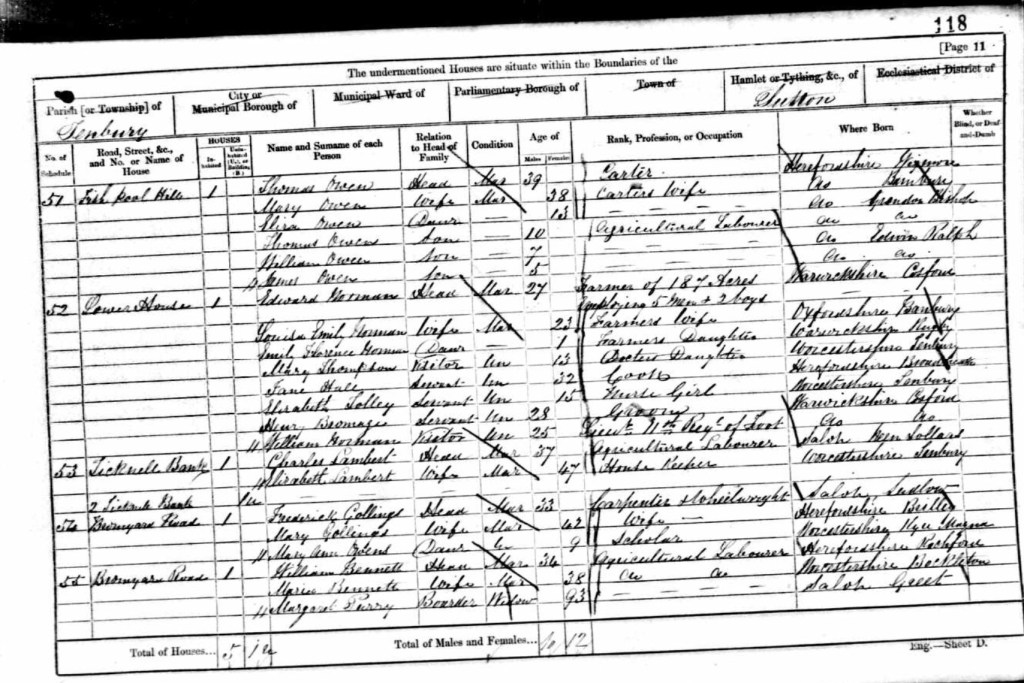 118
[Page 11
The undermentioned Houses are situate within the Boundaries of the
Parish [or Township] of
City or
Municipal Borough of
Municipal Ward of
Parliamentary Borough of
Town of
Hamlet or Tything, &c., of
Ecclesiastical District of
Tenbury
Sutton
No. of Schedule
Road, Street, &c., and No. or Name of House
HOUSES
Inhabited
Uninhabited (U.), or Building (B.)
Name and Surname of each Person
Relation to Head of Family
Condition
Age of
Males
Females
Rank, Profession, or Occupation
Where Born
Whether Blind, or Deaf-and-Dumb
51 Fish Pool Hill 1 Thomas Owen Head Mar 39 Carter Herefordshire Wigmore
Mary Owen Wife Mar 38 Carters Wife do
Eliza Owen Daur — 13 — — — do Grendon Bishop
Thomas Owen Son — 10 Agricultural Labourer do do
William Owen Son — 7 — — — do Edwin Ralph
James Owen Son — 5 — — — do do
52 Lower House 1 Edward Horman Head Mar 27 Farmer of 187 Acres Warwickshire
Employing 5 Men & 2 boys
Louisa Emily Horman Wife Mar 23 Farmers Wife Oxfordshire Banbury
Emily Florence Horman Daur — 1 Farmers Daughter Warwickshire Rugby
Mary Thompson Visitor Un 13 Doctors Daughter Worcestershire Tenbury
Jane Hall Servant Un 32 Cook Herefordshire
Elizabeth Tolley Servant Un 15 Nurse Girl Worcestershire Tenbury
Henry Bromage Servant Un 28 Groom Warwickshire
William Horman Visitor Un 25 Lieut. 11th Reg. of Foot do do
53 Ticknell Bank 1 Charles Lambert Head Mar 37 Agricultural Labourer Salop Neen Sollars
Elizabeth Lambert Wife Mar 47 House Keeper Worcestershire Tenbury
2 Bank 1u
54 Bromyard Road 1 Frederick Gollings Head Mar 33 Carpenter & Wheelwright Salop Ludlow
Mary Gollings Wife Mar 42 Wife — Herefordshire
Mary Ann Owens Daur Un 9 Scholar Worcestershire
55 Bromyard Road 1 William Bennett Head Mar 36 Agricultural Labourer Herefordshire Rochford
Maria Bennett Wife Mar 38 do do Worcestershire Bockleton
Margaret Perry Boarder Widow 93 — — — Salop Greet
Total of Houses... 5 1u
Total of Males and Females... 10 12
Eng.—Sheet D.